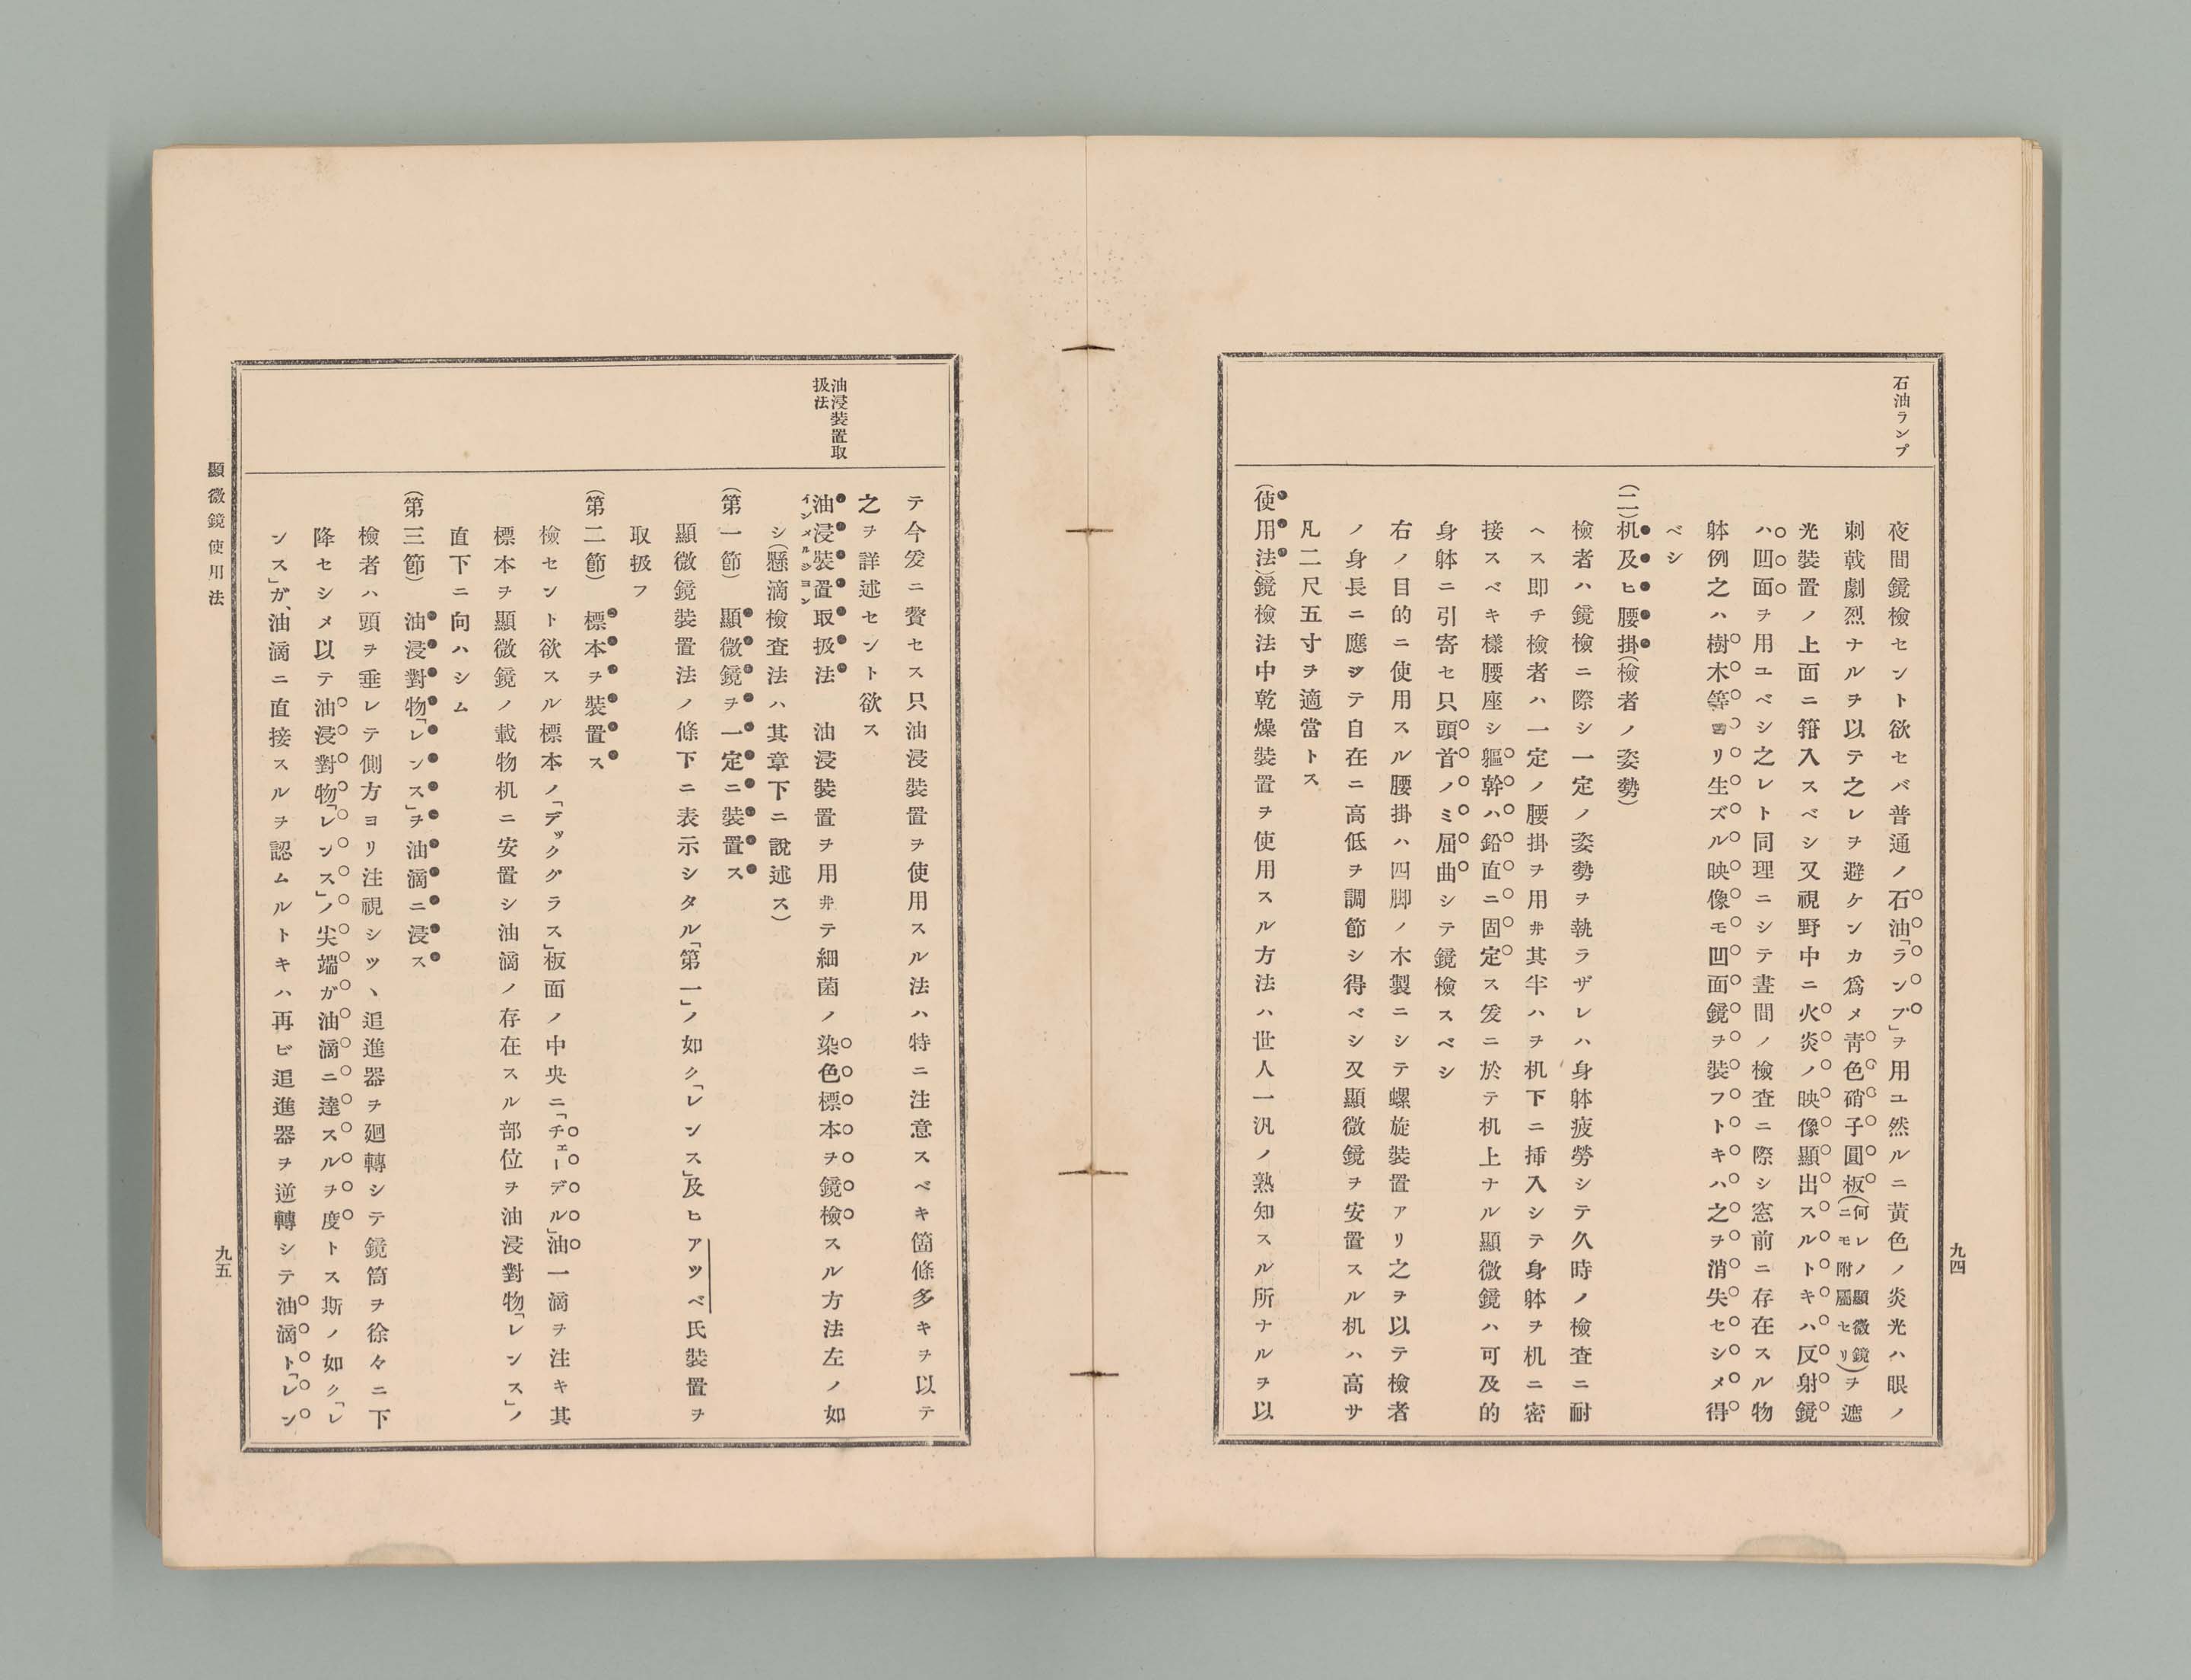 九四
石油ランプ
夜間鏡檢セント欲セバ普通ノ石油「ランプ」ヲ用ユ然ルニ黃色ノ炎光ハ眼ノ
刺戟劇烈ナルヲ以テ之レヲ避ケンカ爲メ靑色硝子圓板(何レノ顯微鏡ニモ附屬セリ)ヲ遮
光裝置ノ上面ニ箝入スベシ又視野中ニ火炎ノ映像顯出スルトキハ反射鏡
ハ凹面ヲ用ユベシ之レト同理ニシテ晝間ノ檢査ニ際シ窓前ニ存在スル物
躰例之ハ樹木等ヨリ生ズル映像モ凹面鏡ヲ裝フトキハ之ヲ消失セシメ得
ベシ
(二)机及ヒ腰掛(檢者ノ姿勢)
檢者ハ鏡檢ニ際シ一定ノ姿勢ヲ執ラザレハ身躰疲勞シテ久時ノ檢査ニ耐
ヘス即チ檢者ハ一定ノ腰掛ヲ用井其半ハヲ机下ニ挿入シテ身躰ヲ机ニ密
接スベキ樣腰座シ軀幹ハ鉛直ニ固定ス爰ニ於テ机上ナル顯微鏡ハ可及的
身躰ニ引寄セ只頭首ノミ屈曲シテ鏡檢スベシ
右ノ目的ニ使用スル腰掛ハ四脚ノ木製ニシテ螺旋裝置アリ之ヲ以テ檢者
ノ身長ニ應ジテ自在ニ高低ヲ調節シ得ベシ又顯微鏡ヲ安置スル机ハ高サ
凡二尺五寸ヲ適當トス
(使用法)鏡檢法中乾燥裝置ヲ使用スル方法ハ世人一汎ノ熟知スル所ナルヲ以
テ今爰ニ贅セス只油浸裝置ヲ使用スル法ハ特ニ注意スベキ箇條多キヲ以テ
之ヲ詳述セント欲ス
油浸裝置取扱法
油浸裝置取扱法 油浸裝置ヲ用井テ細菌ノ染色標本ヲ鏡檢スル方法左ノ如
インメルジヨン
シ(懸滴檢査法ハ其章下ニ說述ス)
(第一節) 顯微鏡ヲ一定ニ裝置ス
顯微鏡裝置法ノ條下ニ表示シタル「第一」ノ如ク「レンス」及ヒアツベ氏裝置ヲ
取扱フ
(第二節) 標本ヲ裝置ス
檢セント欲スル標本ノ「デックグラス」板面ノ中央ニ「チェーデル」油一滴ヲ注キ其
標本ヲ顯微鏡ノ載物机ニ安置シ油滴ノ存在スル部位ヲ油浸對物「レンス」ノ
直下ニ向ハシム
(第三節) 油浸對物「レンス」ヲ油滴ニ浸ス
檢者ハ頭ヲ垂レテ側方ヨリ注視シツヽ追進器ヲ廻轉シテ鏡筒ヲ徐々ニ下
降セシメ以テ油浸對物「レンス」ノ尖端ガ油滴ニ達スルヲ度トス斯ノ如ク「レ
ンス」ガ、油滴ニ直接スルヲ認ムルトキハ再ビ追進器ヲ逆轉シテ油滴ト「レン
顯微鏡使用法
九五